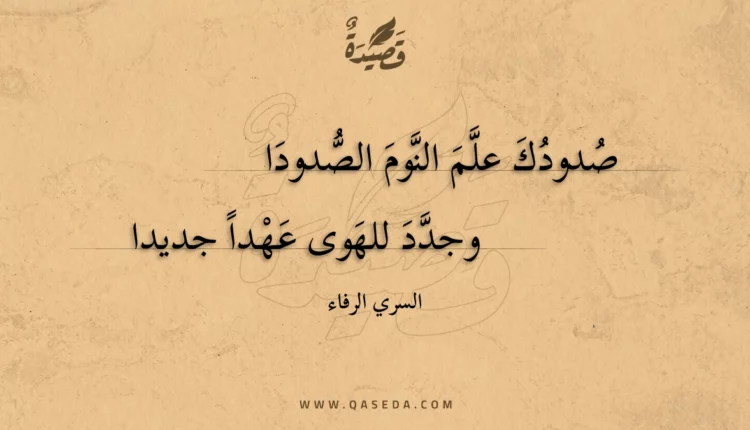 قَصِيدَةٌ
صُدودُكَ علَّمَ النَّومَ الصُّدودَا
وجدَّدَ للهَوى عَهْداً جديدا
السري الرفاء
WWW.QASEDA.COM